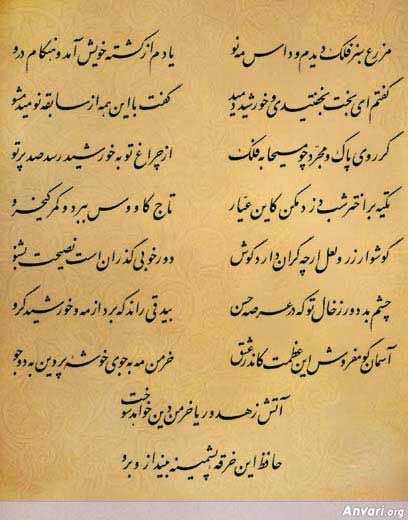 مزرع سبز فلک دیدم و داس مه نو یادم از کشته خویش آمد و هنگام درو
گفتم ای بخت بخفتیدی و خورشید دمید گفت با این همه از سابقه نومید مشو
گر روی پاک و مجرد چو مسیحا به فلک از چراغ تو به خورشید رسد صد پرتو
تکیه بر اختر شب دزد مکن کاین عیار تاج کاووس ببرد و کمر کیخسرو
گوشوار زر و لعل ار چه گران دارد گوش دور خوبی گذران است نصیحت بشنو
چشم بد دور ز خال تو که در عرصه حسن بیدقی راند که برد از مه و خورشید گرو
آسمان گو مفروش این عظمت کاندر عشق خرمن مه به جوی خوشه پروین به دو جو
آتش زهد و ریا خرمن دین خواهد سوخت
حافظ این خرقه پشمینه بینداز و برو
Anvari.org